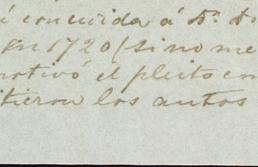 é concedida á Dn. D.
en 1720 (si no me
motivó el pleito con
itieron los autos